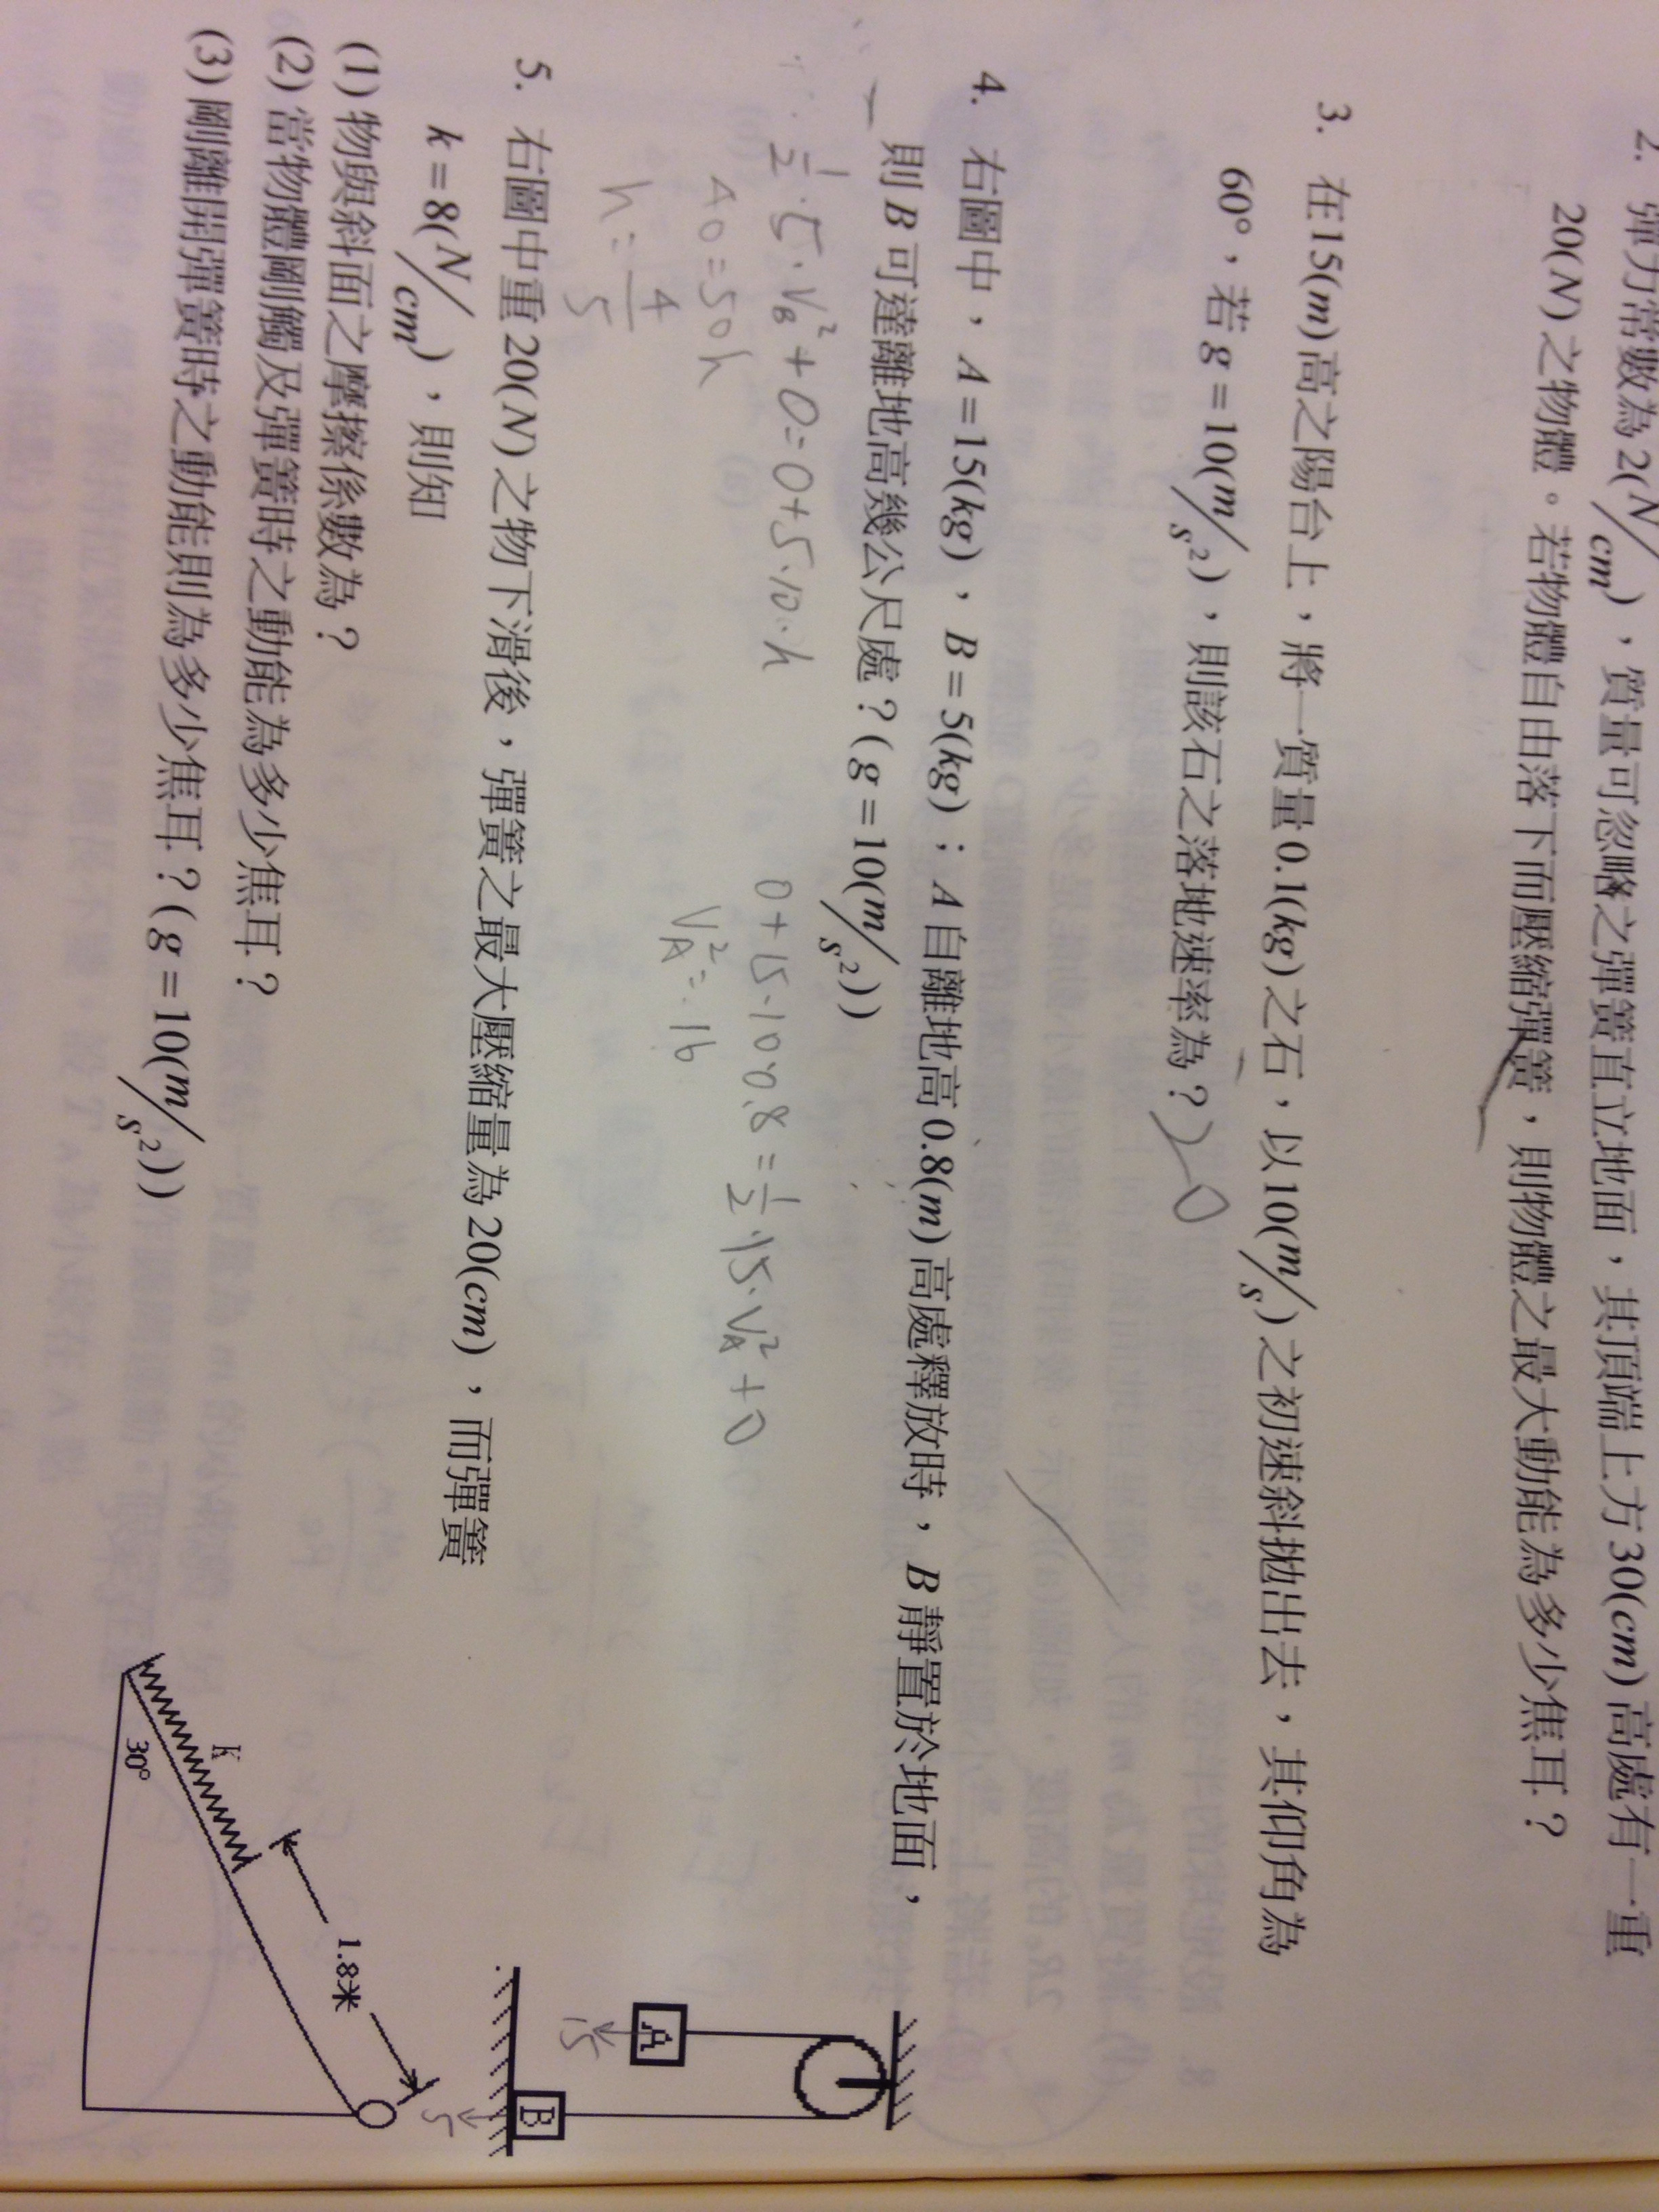 2. 彈力常數為 2(N/cm)，質量可忽略之彈簧直立地面，其頂端上方 30(cm) 高處有一重
20(N) 之物體。若物體自由落下而壓縮彈簧，則物體之最大動能為多少焦耳？
3. 在 15(m) 高之陽台上，將一質量 0.1(kg) 之石，以 10(m/s) 之初速斜拋出去，其仰角為
60°，若 g = 10(m/s²)，則該石之落地速率為？
4. 右圖中， A = 15(kg)、B = 5(kg)；A 自離地高 0.8(m) 高處釋放時，B 靜置於地面，
則 B 可達離地高幾公尺處？(g = 10(m/s²))
½·5·V_B² + 0 = 0 + 5·10·h
40 = 50h
h = 4/5
0 + 15·10·0.8 = ½·15·V_A² + 0
V_A² = 16
A
15
B
5
5. 右圖中重 20(N) 之物下滑後，彈簧之最大壓縮量為 20(cm)，而彈簧
k = 8(N/cm)，則知
(1) 物與斜面之摩擦係數為？
(2) 當物體剛觸及彈簧時之動能為多少焦耳？
(3) 剛離開彈簧時之動能則為多少焦耳？(g = 10(m/s²))
K
30°
1.8米